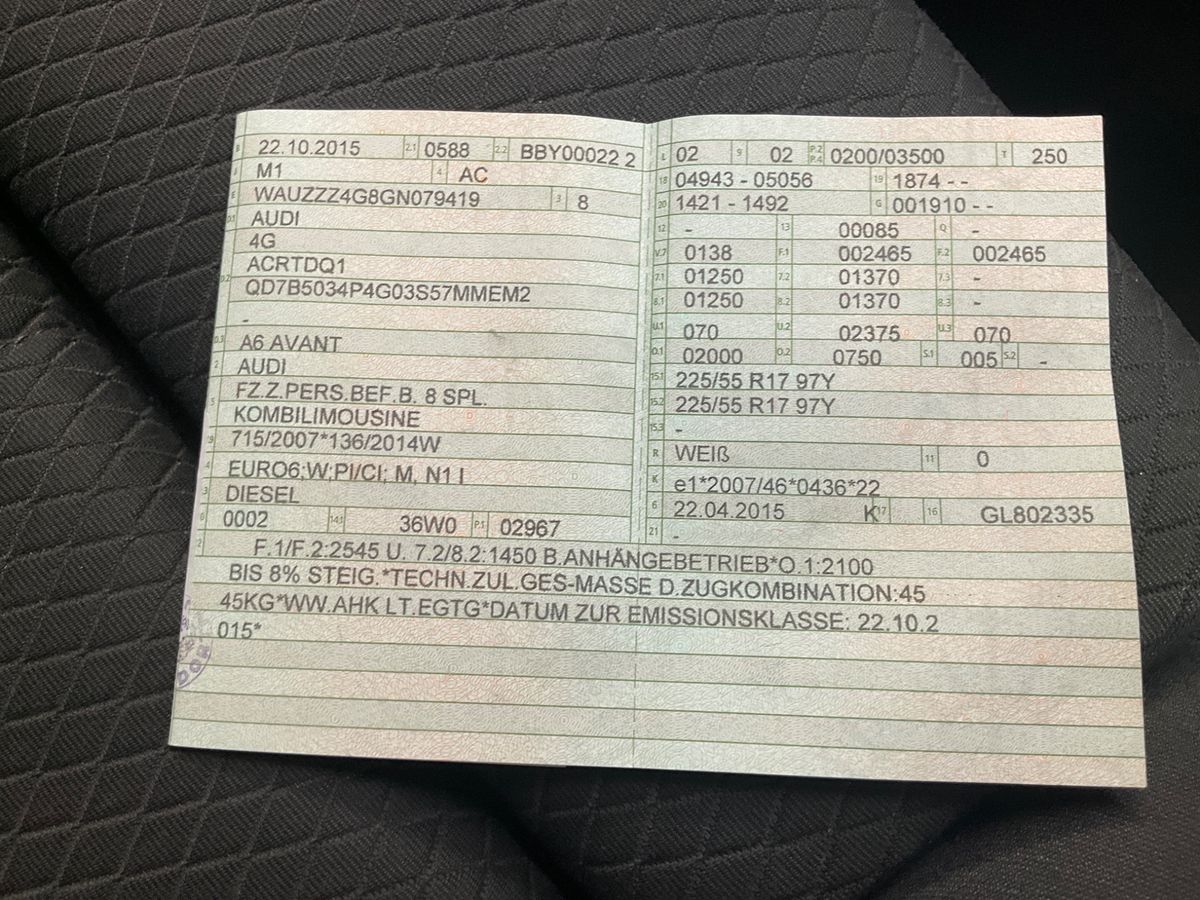 B 22.10.2015 2.1 0588 2.2 BBY00022 2
J M1 4 AC
E WAUZZZ4G8GN079419 3 8
D.1 AUDI
4G
ACRTDQ1
D.2 QD7B5034P4G03S57MMEM2
-
D.3 A6 AVANT
2 AUDI
5 FZ.Z.PERS.BEF.B. 8 SPL.
KOMBILIMOUSINE
715/2007*136/2014W
EURO6;W;PI/CI; M, N1 I
DIESEL
0002 14.1 36W0 P.1 02967
L 02 9 02 P.2 P.4 0200/03500 T 250
18 04943 - 05056 19 1874 - -
20 1421 - 1492 G 001910 - -
12 - 13 00085 Q -
V.7 0138 F.1 002465 F.2 002465
7.1 01250 7.2 01370 7.3 -
8.1 01250 8.2 01370 8.3 -
U.1 070 U.2 02375 U.3 070
O.1 02000 O.2 0750 S.1 005 S.2 -
15.1 225/55 R17 97Y
15.2 225/55 R17 97Y
15.3 -
R WEIß 11 0
K e1*2007/46*0436*22
6 22.04.2015 K 17 16 GL802335
21 -
F.1/F.2:2545 U. 7.2/8.2:1450 B.ANHÄNGEBETRIEB*O.1:2100
BIS 8% STEIG.*TECHN.ZUL.GES-MASSE D.ZUGKOMBINATION:45
45KG*WW.AHK LT.EGTG*DATUM ZUR EMISSIONSKLASSE: 22.10.2
015*